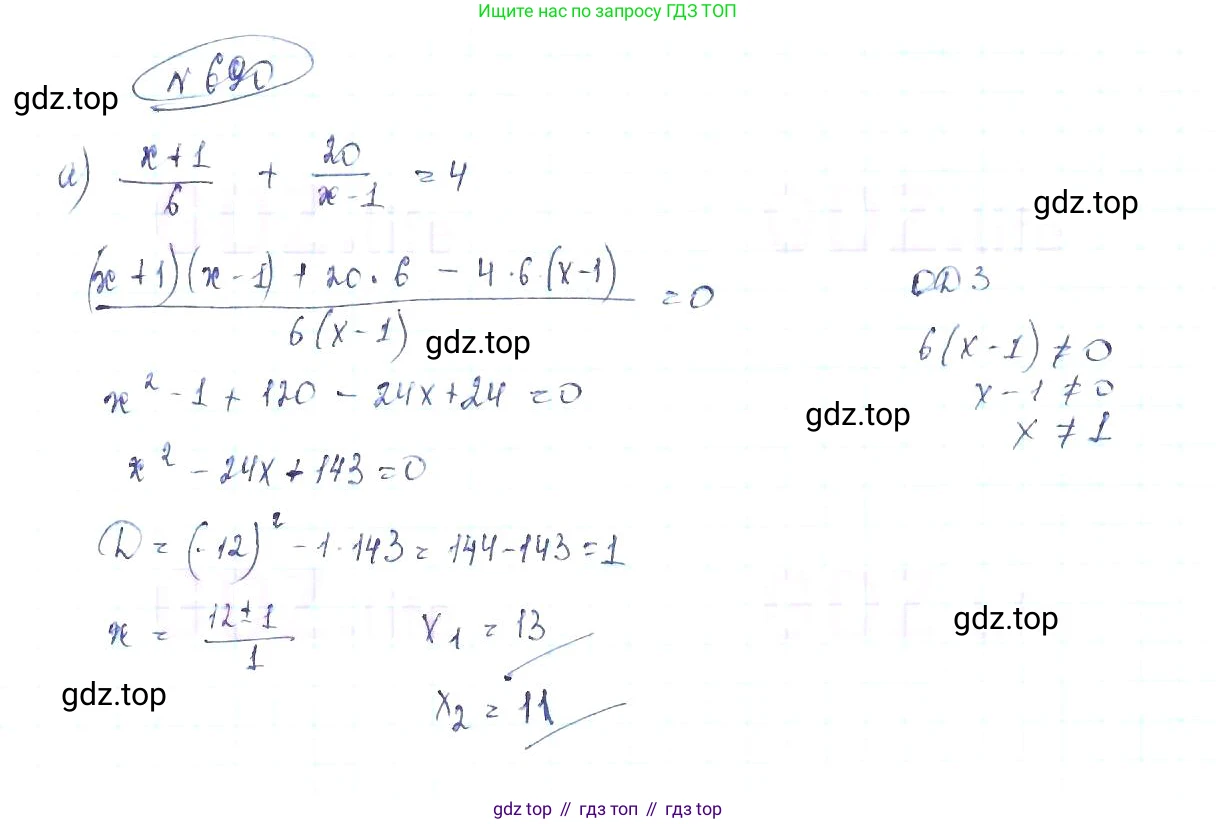 Ищите нас по запросу ГДЗ ТОП
N 690
gdz.top
а) \frac{x+1}{6} + \frac{20}{x-1} = 4
gdz.top
\frac{(x+1)(x-1) + 20·6 - 4·6·(x-1)}{6(x-1)} = 0
ОДЗ
gdz.top
6(x-1) ≠ 0
x² - 1 + 120 - 24x + 24 = 0
x - 1 ≠ 0
gdz.top
x ≠ 1
x² - 24x + 143 = 0
D = (-12)² - 1·143 = 144 - 143 = 1
x = \frac{12±1}{1} x₁ = 13
gdz.top
gdz.top
x₂ = 11
gdz top // гдз топ // гдз top